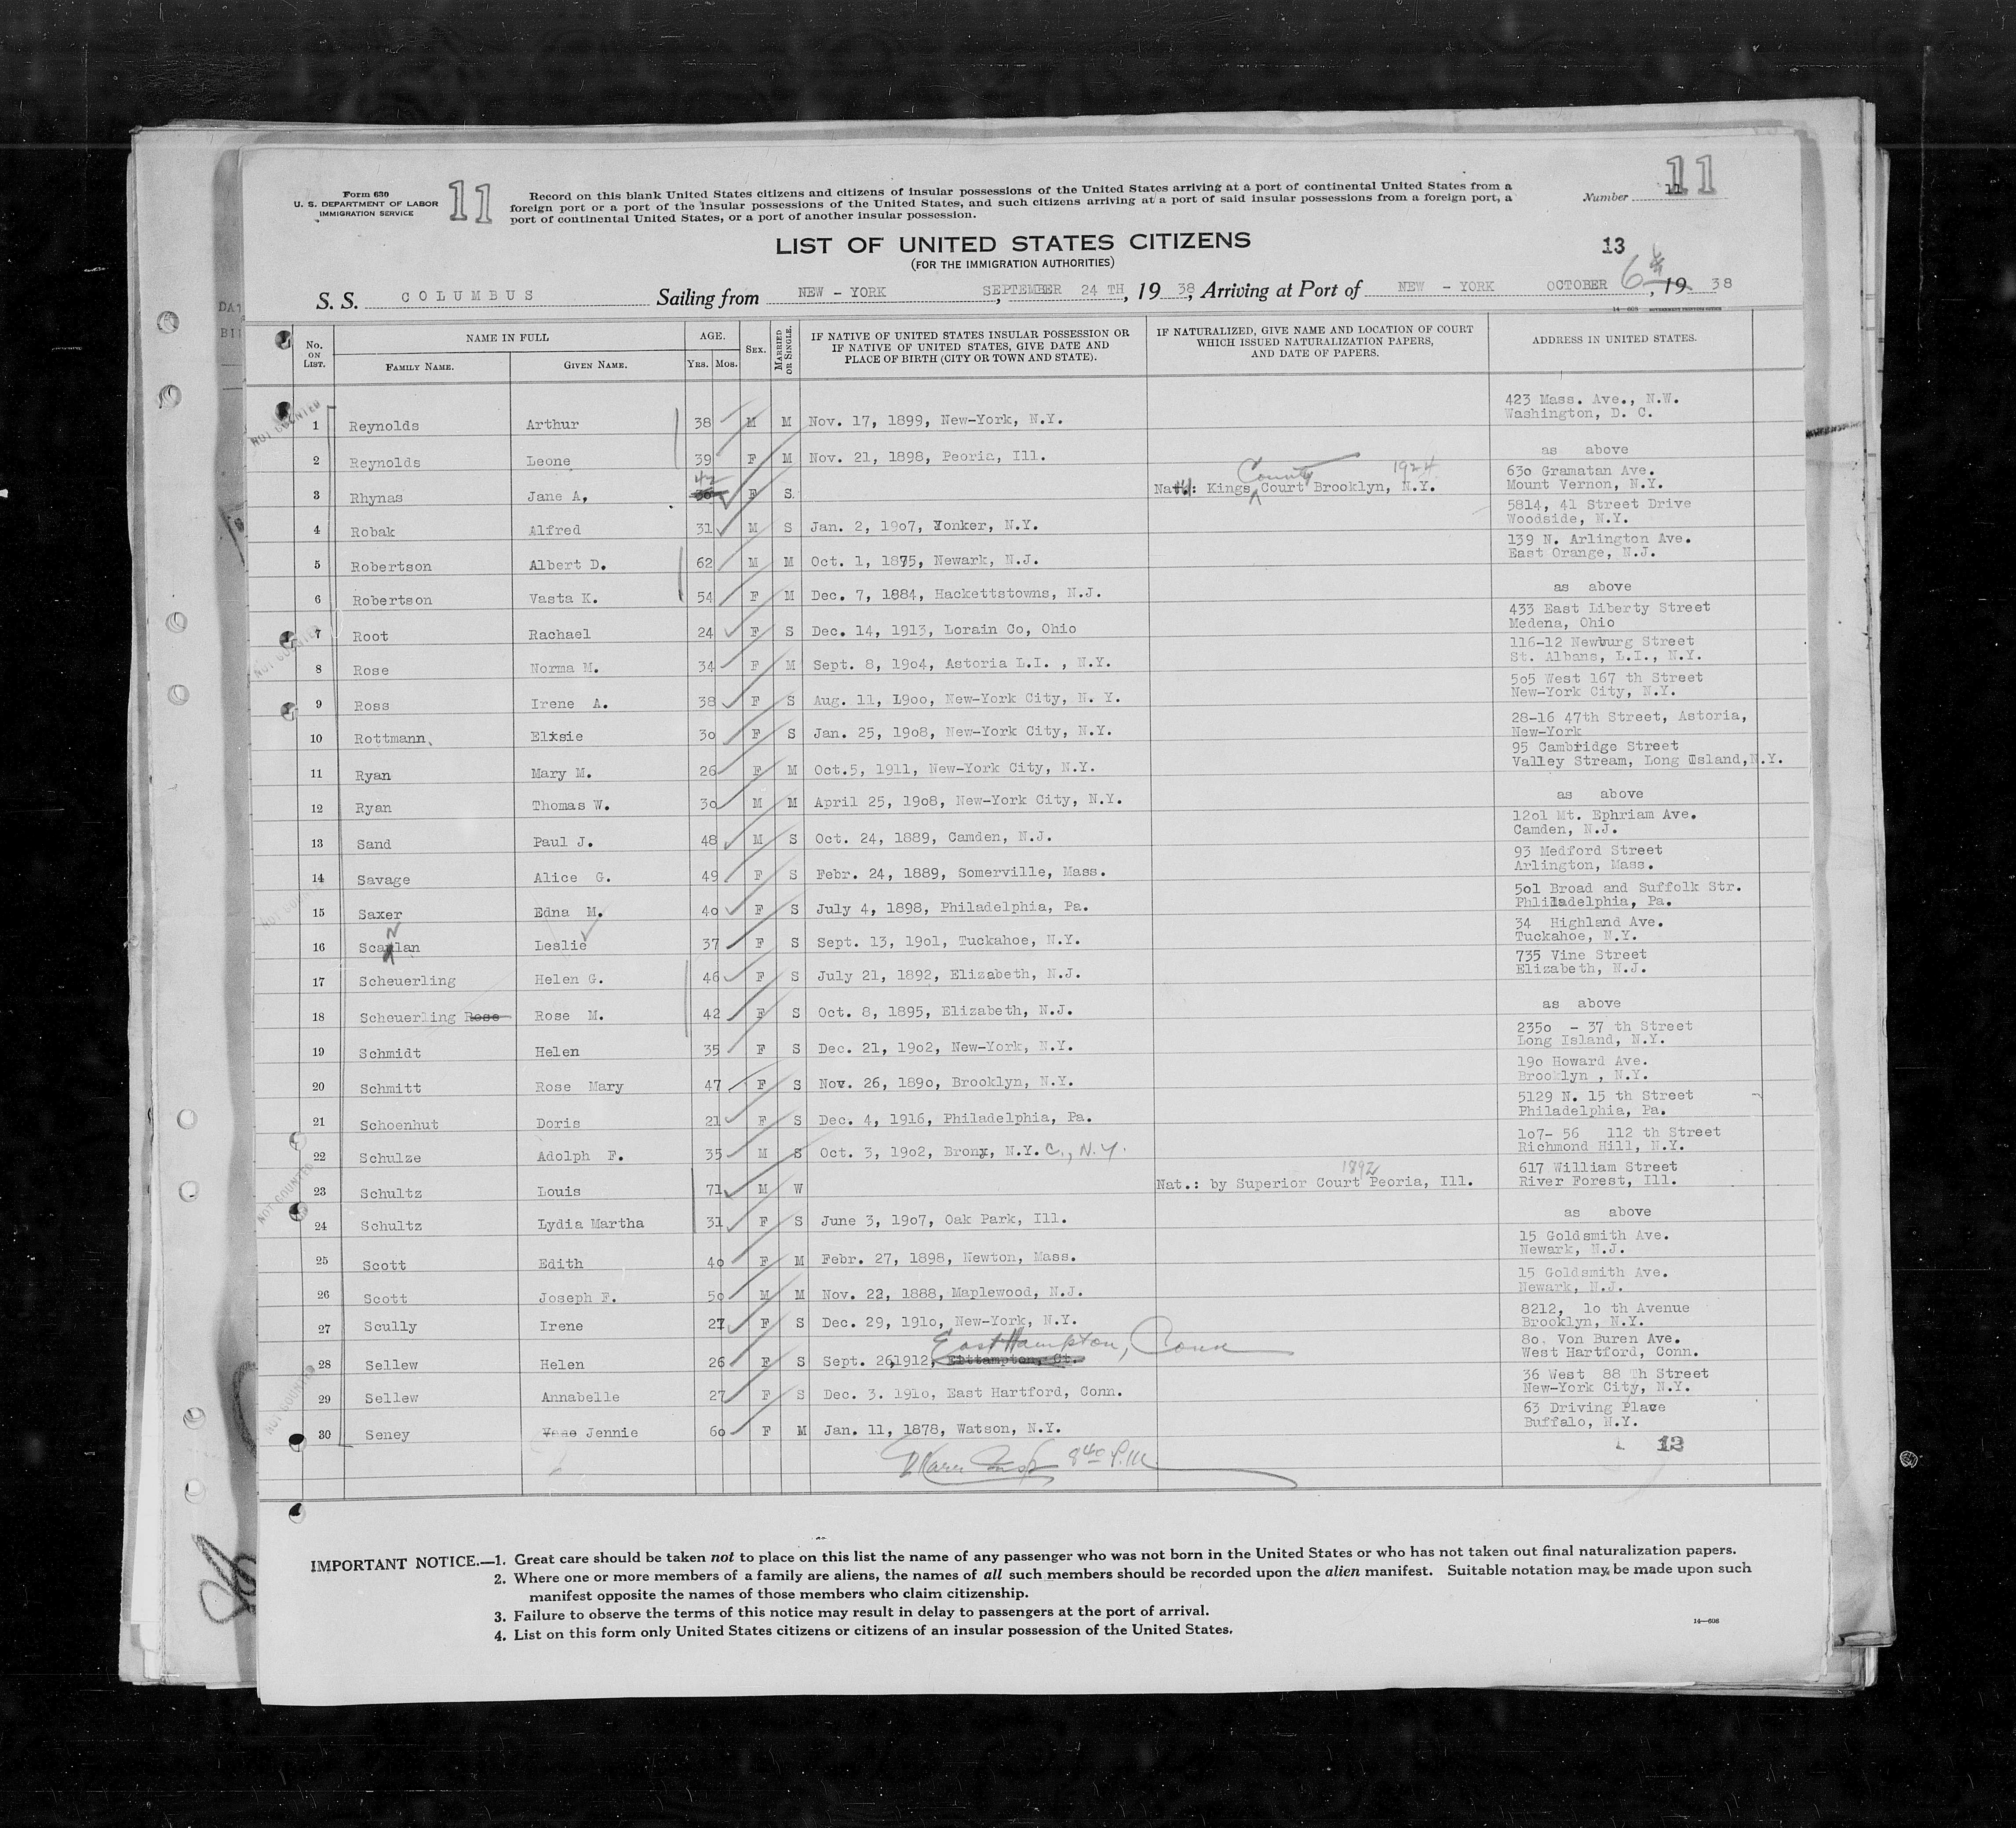 Form 630
U. S. DEPARTMENT OF LABOR
IMMIGRATION SERVICE
11
Record on this blank United States citizens and citizens of insular possessions of the United States arriving at a port of continental United States from a
foreign port or a port of the insular possessions of the United States, and such citizens arriving at a port of said insular possessions from a foreign port, a
port of continental United States, or a port of another insular possession.
Number 11
11
LIST OF UNITED STATES CITIZENS
(FOR THE IMMIGRATION AUTHORITIES)
13
S. S. COLUMBUS Sailing from NEW - YORK, SEPTEMBER 24 TH, 19 38, Arriving at Port of NEW - YORK OCTOBER 6th, 19 38
14—608 GOVERNMENT PRINTING OFFICE
No. ON LIST. NAME IN FULL FAMILY NAME. GIVEN NAME. AGE. YRS. MOS. SEX. MARRIED OR SINGLE. IF NATIVE OF UNITED STATES INSULAR POSSESSION OR IF NATIVE OF UNITED STATES, GIVE DATE AND PLACE OF BIRTH (CITY OR TOWN AND STATE). IF NATURALIZED, GIVE NAME AND LOCATION OF COURT WHICH ISSUED NATURALIZATION PAPERS, AND DATE OF PAPERS. ADDRESS IN UNITED STATES.
NOT COUNTED
1 Reynolds Arthur 38 M M Nov. 17, 1899, New-York, N.Y. 423 Mass. Ave., N.W. Washington, D. C.
2 Reynolds Leone 39 F M Nov. 21, 1898, Peoria, Ill. as above
3 Rhynas Jane A, 42 F S. Nat.: Kings County Court Brooklyn, N.Y. 1924 630 Gramatan Ave. Mount Vernon, N.Y.
4 Robak Alfred 31 M S Jan. 2, 1907, Yonker, N.Y. 5814, 41 Street Drive Woodside, N.Y.
5 Robertson Albert D. 62 M M Oct. 1, 1875, Newark, N.J. 139 N. Arlington Ave. East Orange, N.J.
6 Robertson Vasta K. 54 F M Dec. 7, 1884, Hackettstowns, N.J. as above
7 Root Rachael 24 F S Dec. 14, 1913, Lorain Co, Ohio 433 East Liberty Street Medena, Ohio
8 Rose Norma M. 34 F M Sept. 8, 1904, Astoria L.I. , N.Y. 116-12 Newburg Street St. Albans, L.I., N.Y.
9 Ross Irene A. 38 F S Aug. 11, 1900, New-York City, N. Y. 505 West 167 th Street New-York City, N.Y.
10 Rottmann, Elsie 30 F S Jan. 25, 1908, New-York City, N.Y. 28-16 47th Street, Astoria, New-York
11 Ryan Mary M. 26 F M Oct.5, 1911, New-York City, N.Y. 95 Cambridge Street Valley Stream, Long Island,N.Y.
12 Ryan Thomas W. 30 M M April 25, 1908, New-York City, N.Y. as above
13 Sand Paul J. 48 M S Oct. 24, 1889, Camden, N.J. 1201 Mt. Ephriam Ave. Camden, N.J.
14 Savage Alice G. 49 F S Febr. 24, 1889, Somerville, Mass. 93 Medford Street Arlington, Mass.
15 Saxer Edna M. 40 F S July 4, 1898, Philadelphia, Pa. 501 Broad and Suffolk Str. Phliladelphia, Pa.
16 Scanlan Leslie 37 F S Sept. 13, 1901, Tuckahoe, N.Y. 34 Highland Ave. Tuckahoe, N.Y.
17 Scheuerling Helen G. 46 F S July 21, 1892, Elizabeth, N.J. 735 Vine Street Elizabeth, N.J.
18 Scheuerling Rose Rose M. 42 F S Oct. 8, 1895, Elizabeth, N.J. as above
19 Schmidt Helen 35 F S Dec. 21, 1902, New-York, N.Y. 2350 - 37 th Street Long Island, N.Y.
20 Schmitt Rose Mary 47 F S Nov. 26, 1890, Brooklyn, N.Y. 190 Howard Ave. Brooklyn , N.Y.
21 Schoenhut Doris 21 F S Dec. 4, 1916, Philadelphia, Pa. 5129 N. 15 th Street Philadelphia, Pa.
22 Schulze Adolph F. 35 M S Oct. 3, 1902, Bronx, N.Y. C., N.Y. 107- 56 112 th Street Richmond Hill, N.Y.
23 Schultz Louis 71 M W Nat.: by Superior Court Peoria, Ill. 1892 617 William Street River Forest, Ill.
24 Schultz Lydia Martha 31 F S June 3, 1907, Oak Park, Ill. as above
25 Scott Edith 40 F M Febr. 27, 1898, Newton, Mass. 15 Goldsmith Ave. Newark, N.J.
26 Scott Joseph F. 50 M M Nov. 22, 1888, Maplewood, N.J. 15 Goldsmith Ave. Newark, N.J.
27 Scully Irene 27 F S Dec. 29, 1910, New-York, N.Y. 8212, 10 th Avenue Brooklyn, N.Y.
28 Sellew Helen 26 F S Sept. 26,1912, East Hampton, Conn 80. Von Buren Ave. West Hartford, Conn.
29 Sellew Annabelle 27 F S Dec. 3. 1910, East Hartford, Conn. 36 West 88 Th Street New-York City, N.Y.
30 Seney Jennie 60 F M Jan. 11, 1878, Watson, N.Y. 63 Driving Place Buffalo, N.Y.
8 40 P.M.
12
IMPORTANT NOTICE.—1. Great care should be taken not to place on this list the name of any passenger who was not born in the United States or who has not taken out final naturalization papers.
2. Where one or more members of a family are aliens, the names of all such members should be recorded upon the alien manifest. Suitable notation may be made upon such
manifest opposite the names of those members who claim citizenship.
3. Failure to observe the terms of this notice may result in delay to passengers at the port of arrival.
4. List on this form only United States citizens or citizens of an insular possession of the United States.
14—608